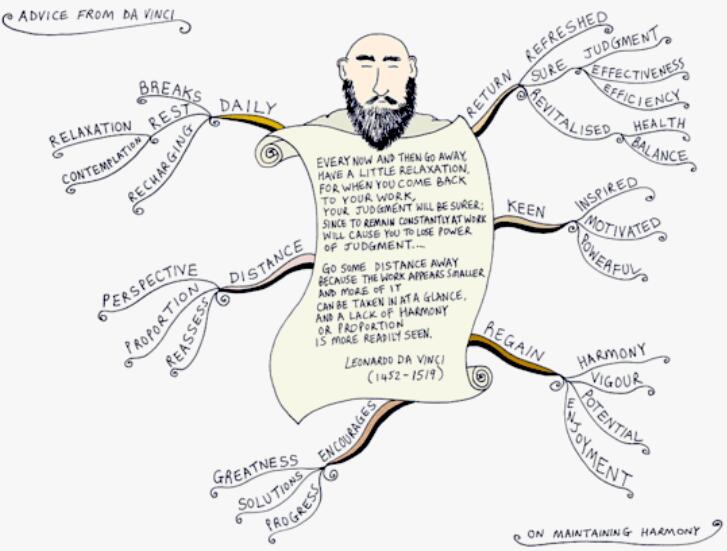 ADVICE FROM DA VINCI
EVERY NOW AND THEN GO AWAY,
HAVE A LITTLE RELAXATION,
FOR WHEN YOU COME BACK
TO YOUR WORK,
YOUR JUDGMENT WILL BE SURER;
SINCE TO REMAIN CONSTANTLY AT WORK
WILL CAUSE YOU TO LOSE POWER
OF JUDGMENT....
GO SOME DISTANCE AWAY
BECAUSE THE WORK APPEARS SMALLER
AND MORE OF IT
CAN BE TAKEN IN AT A GLANCE,
AND A LACK OF HARMONY
OR PROPORTION
IS MORE READILY SEEN.
LEONARDO DA VINCI
(1452-1519)
RETURN
REFRESHED
SURE
JUDGMENT
EFFECTIVENESS
EFFICIENCY
REVITALISED
HEALTH
BALANCE
KEEN
INSPIRED
MOTIVATED
POWERFUL
REGAIN
HARMONY
VIGOUR
POTENTIAL
ENJOYMENT
ENCOURAGES
GREATNESS
SOLUTIONS
PROGRESS
DISTANCE
PERSPECTIVE
PROPORTION
REASSESS
DAILY
BREAKS
REST
RELAXATION
CONTEMPLATION
RECHARGING
ON MAINTAINING HARMONY